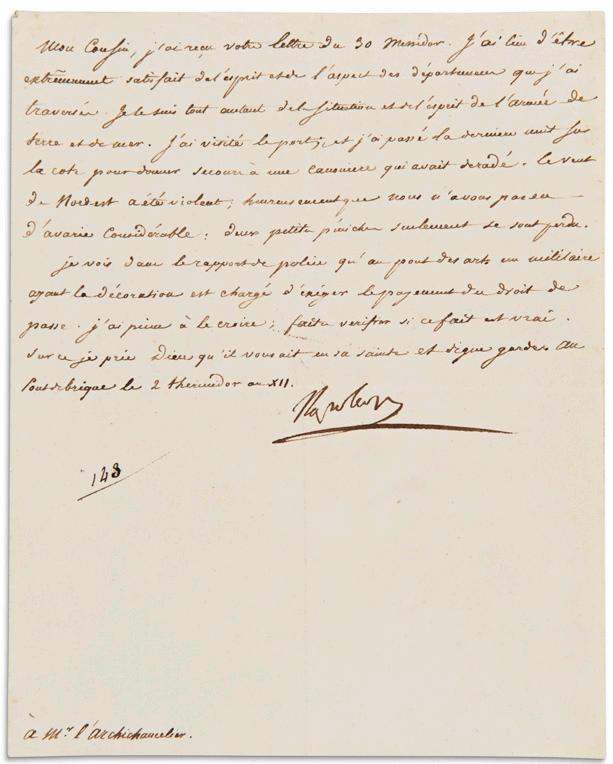 Mon Cousin, j'ai reçu votre lettre du 30 Messidor. J'ai lieu d'être
extrêmement satisfait de l'esprit et de l'aspect des départemens que j'ai
traversés. Je le suis tout autant de la Situation et de l'esprit de l'armée de
terre et de mer. J'ai visité le port, et j'ai passé la derniere nuit sur
la cote pour donner secours à une canoniere qui avait deradé. Le vent
de Nord est a été violent; heureusement que nous n'avons pas eu
d'avarie Considérable: deux petites péniches seulement se sont perdu.
je vois dans le rapport de police qu'au pont des arts un militaire
ayant la décoration est chargé d'éxiger le payement du droit de
passe. j'ai peine à le croire; faites verifier si ce fait est vrai.
Sur ce je prie Dieu qu'il vous ait en sa sainte et digne garde. Au
Pont de brique le 2 thermidor an XII.
Napoleon
148
a Mr. l'archichancelier.